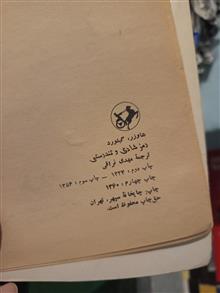 هاوزر، گیلورد
رمز شادی و تندرستی
ترجمهٔ مهدی نراقی
چاپ دوم: ۱۳۴۳ – چاپ سوم: ۱۳۵۴
چاپ چهارم: ۱۳۶۰
چاپ: چاپخانهٔ سپهر، تهران
حق چاپ محفوظ است.